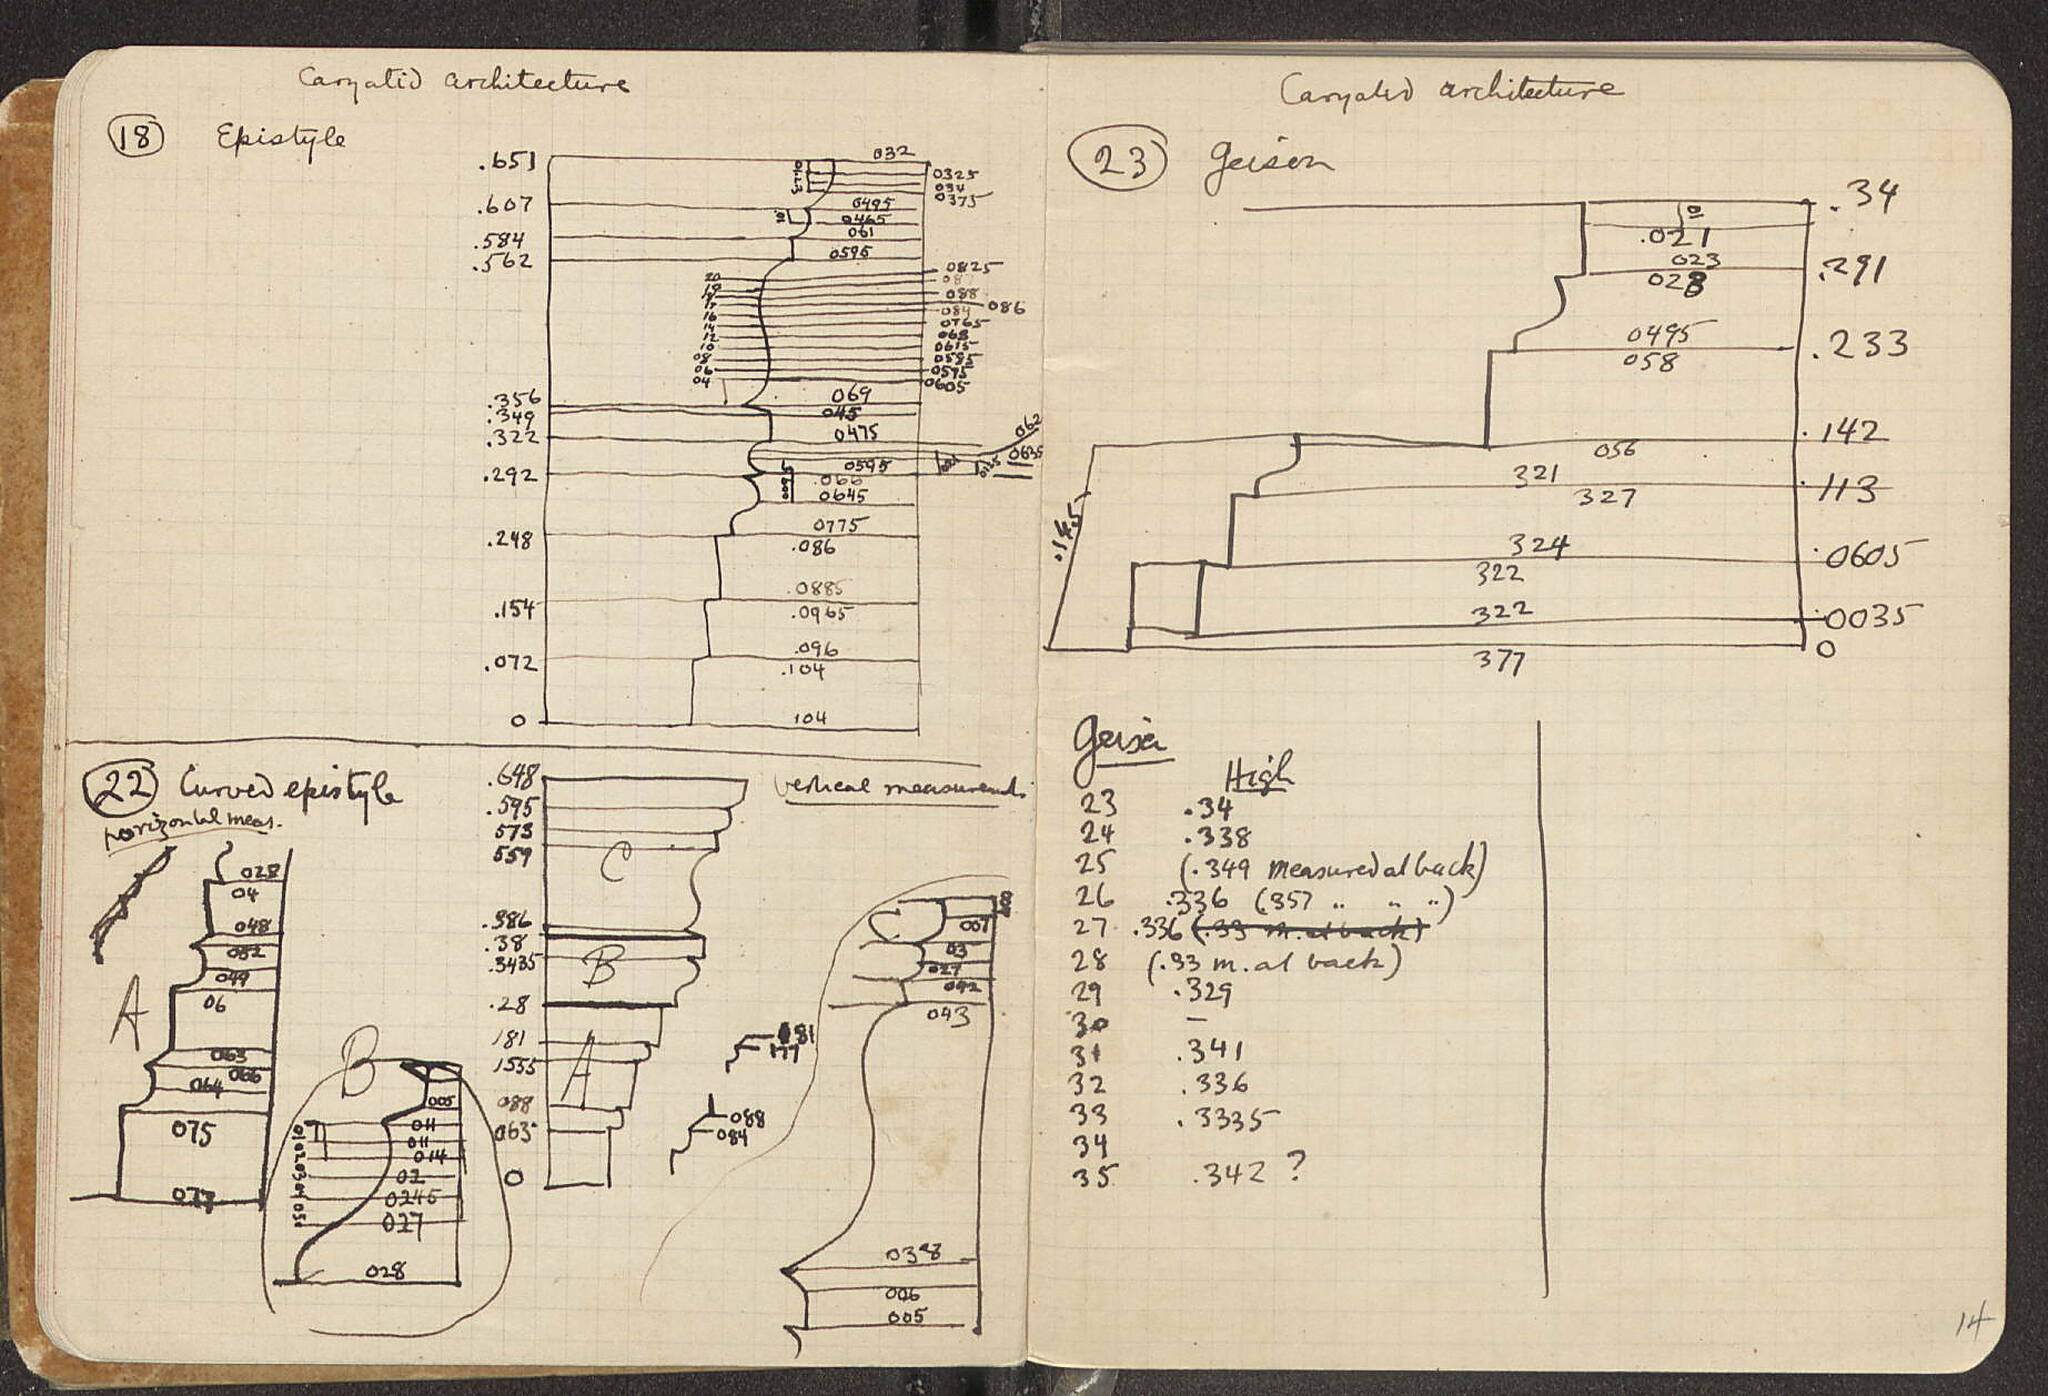 Caryatid architecture
18 Epistyle
.651
.607
.584
.562
.356
.349
.322
.292
.248
.154
.072
0
032
0325
034
0375
0495
0465
061
0595
20 0825
08
088
086
16 084
14 0765
12 068
10 0615
08 0585
06 0595
04 0605
069
045
0475
062
0635
0595
.066
0645
0775
.086
.0885
.0965
.096
.104
104
22 Curved epistyle
horizontal meas.
vertical measurements
028
04
048
052
049
06
A
063
066
064
075
077
B
005
011
011
014
02
0245
027
028
01 02 03 04 05
.648
.595
573
559
C
.386
.38
.3435
B
.28
181
1535
A
088
063
0
181
177
088
084
007
03
027
042
043
038
006
005
Caryatid architecture
23 Geison
.34
.021
023
028
.291
0495
058
.233
.142
056
321
.113
327
324
.0605
322
322
.0035
377
0
.145
Geisa
High
23 .34
24 .338
25 (.349 measured at back)
26 .336 (.357 " " ")
27 .336 (.33 m. at back)
28 (.33 m. at back)
29 .329
30 –
31 .341
32 .336
33 .3335
34
35 .342 ?
14